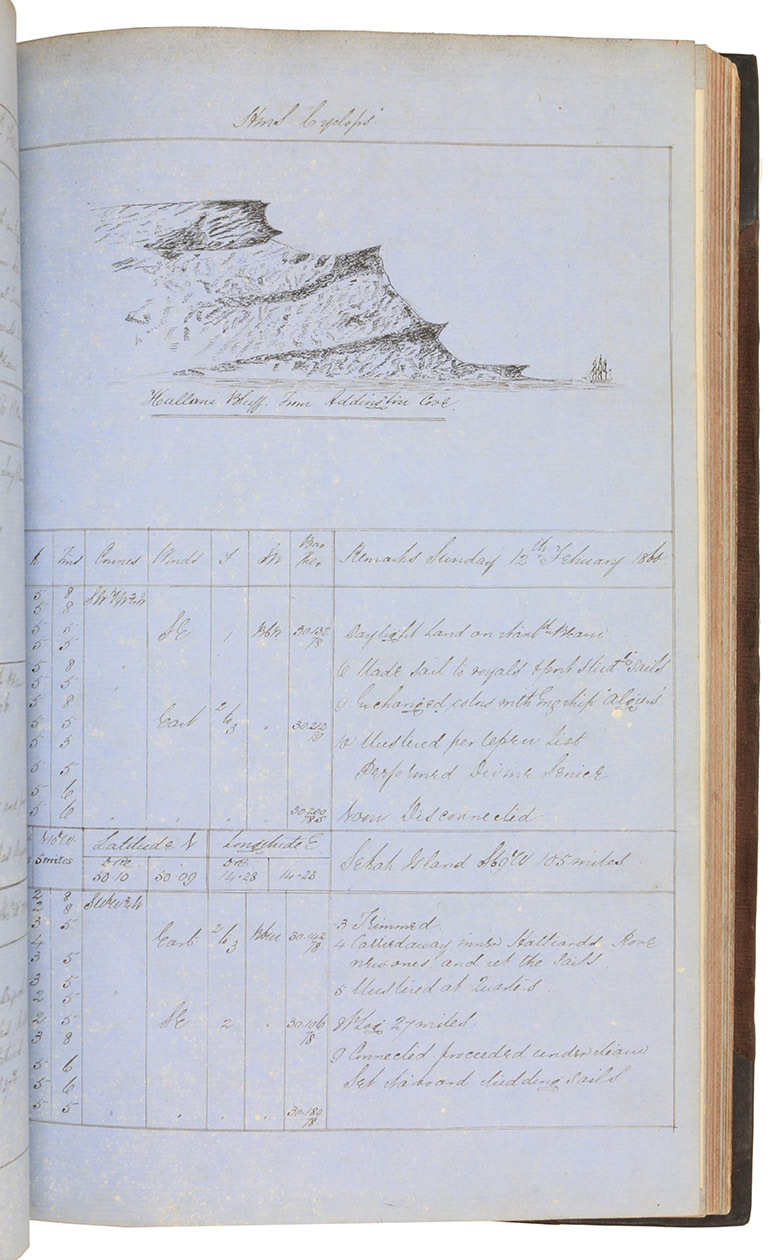 HMS "Cyclops"
Hallani Bluff. From Addington Cove.
K Fms Courses Winds F W Bar Ther Remarks Sunday 12th February 1860
5 8 SW
5 8
5 5 SE 1 30·132 Daylight Land on
5 5 78
5 8 6 Made sail to royals & port studg sails
5 5
5 8 9 Exchanged colors with Eng ship "Algiers"
5 5 East 2 to 3 . 30·212
5 3 70 10 Mustered per open List
5 5 Performed Divine Service
5 6
5 6 . . . . 30·200 Noon Disconnected
Latitude N Longitude E
5 miles DR 50·10 50·09 DR 14·28 14·23 Island S69W 105 miles
2 8
2 8
3 5 3 Trimmed
4 East 2 to 3 30·142 4 Carried away inner Halliards. Rove
3 5 78 new ones and set the Sails.
3 5
2 5 5 Mustered at Quarters.
2 5 SE 2 . 30·106 8 P Log 27 miles.
3 8 78
5 6 9 Connected proceeded under steam
5 6 Set and studding sails
5 5 . . . . 30·182
78